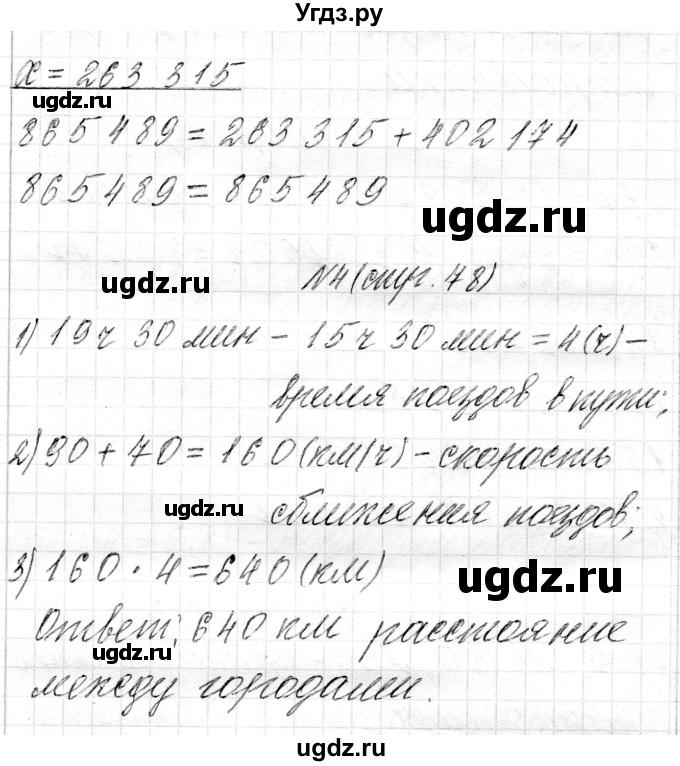 Угдз.ру
x = 263 315
ugdz.ru
865 489 = 263 315 + 402 174
865 489 = 865 489
ugdz.ru
ugdz.ru
№4 (стр. 78)
1) 19ч 30 мин – 15ч 30 мин = 4(ч) –
время поездов в пути;
2) 90 + 70 = 160 (км/ч) – скорость
ugdz.ru
сближения поездов;
3) 160 · 4 = 640 (км)
ugdz.ru
Ответ: 640 км расстояние
ugdz.ru
между городами.
ugdz.ru